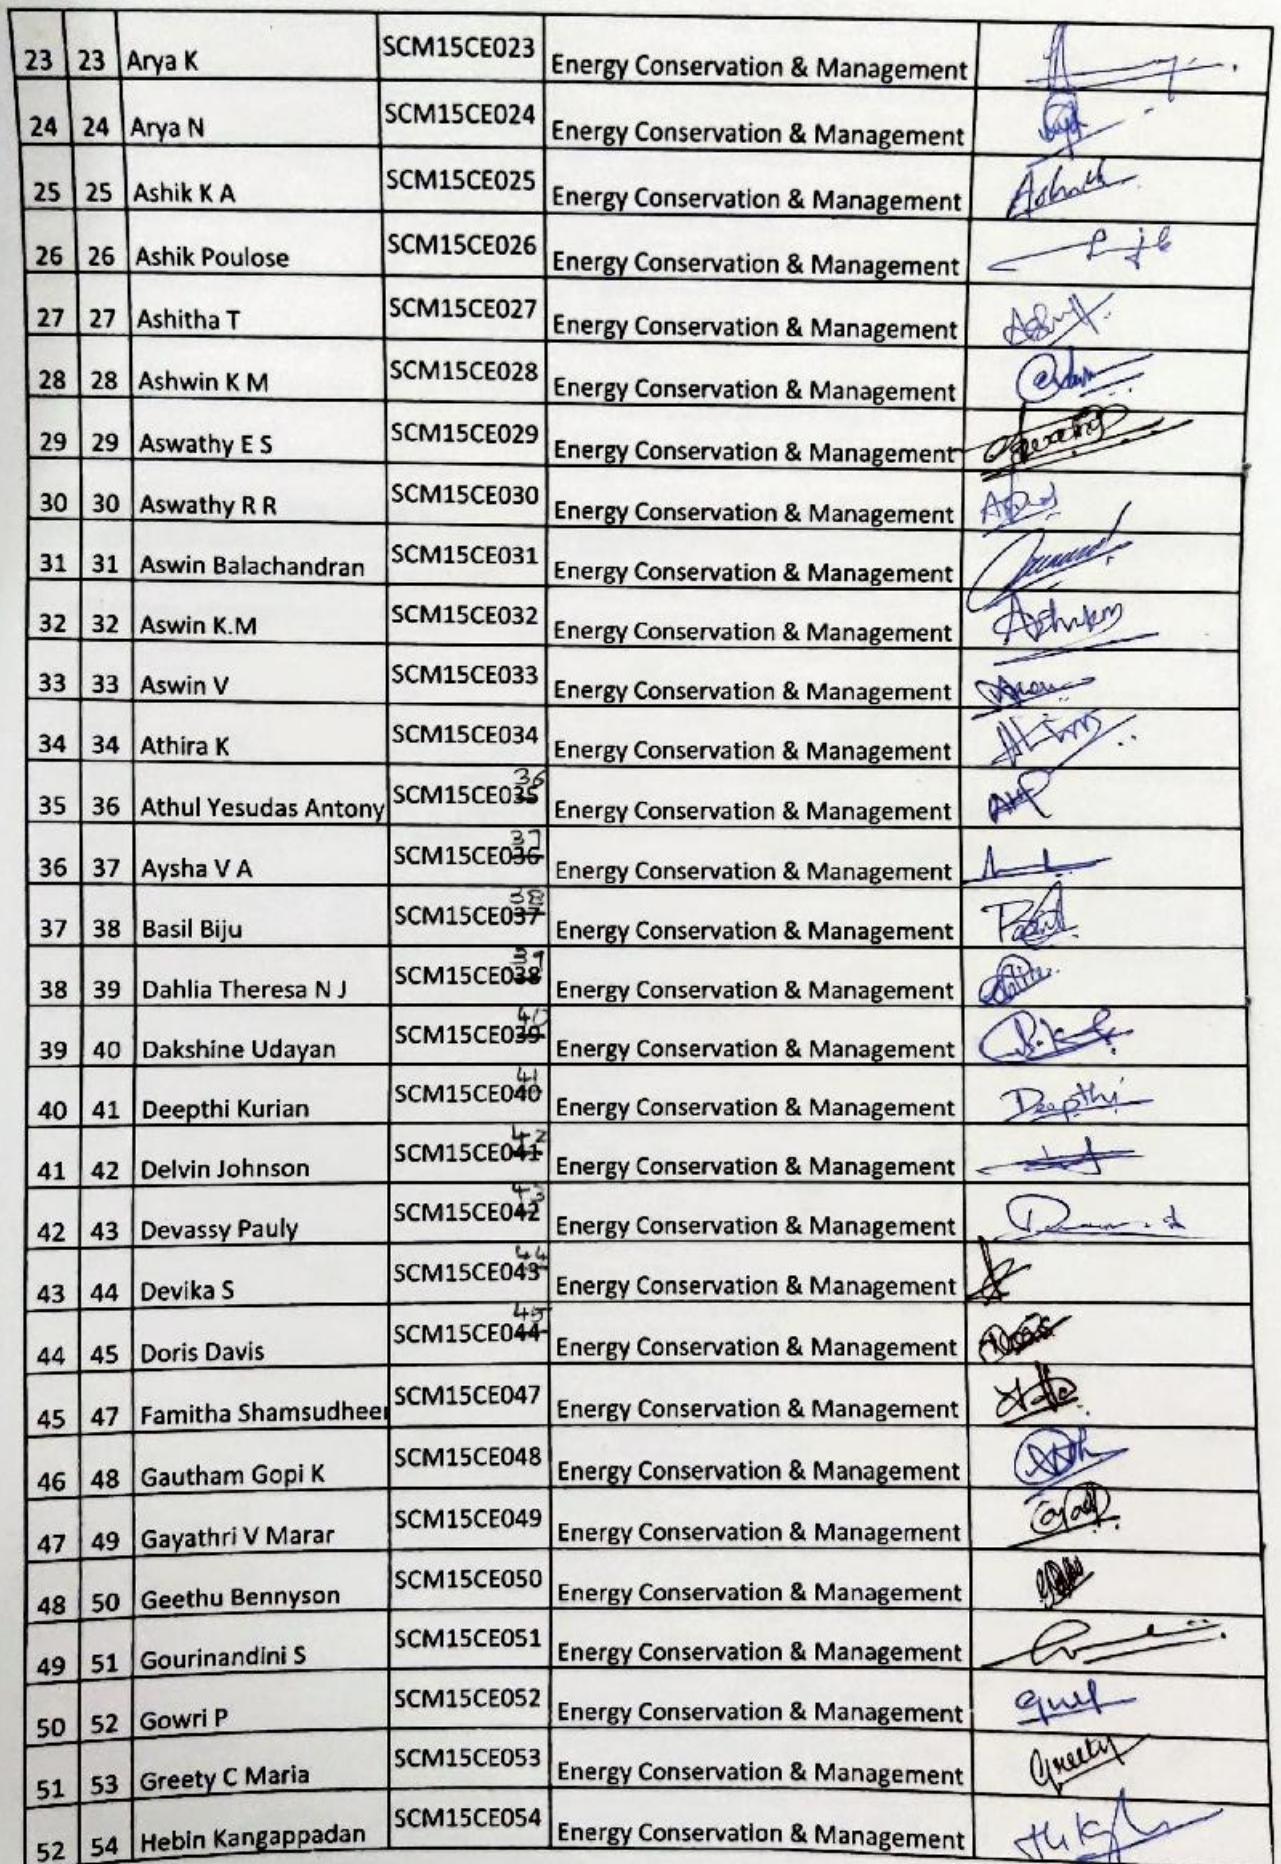 23 23 Arya K SCM15CE023 Energy Conservation & Management
24 24 Arya N SCM15CE024 Energy Conservation & Management
25 25 Ashik K A SCM15CE025 Energy Conservation & Management
26 26 Ashik Poulose SCM15CE026 Energy Conservation & Management
27 27 Ashitha T SCM15CE027 Energy Conservation & Management
28 28 Ashwin K M SCM15CE028 Energy Conservation & Management
29 29 Aswathy E S SCM15CE029 Energy Conservation & Management
30 30 Aswathy R R SCM15CE030 Energy Conservation & Management
31 31 Aswin Balachandran SCM15CE031 Energy Conservation & Management
32 32 Aswin K.M SCM15CE032 Energy Conservation & Management
33 33 Aswin V SCM15CE033 Energy Conservation & Management
34 34 Athira K SCM15CE034 Energy Conservation & Management
35 36 Athul Yesudas Antony SCM15CE035 36 Energy Conservation & Management
36 37 Aysha V A SCM15CE036 37 Energy Conservation & Management
37 38 Basil Biju SCM15CE037 38 Energy Conservation & Management
38 39 Dahlia Theresa N J SCM15CE038 39 Energy Conservation & Management
39 40 Dakshine Udayan SCM15CE039 40 Energy Conservation & Management
40 41 Deepthi Kurian SCM15CE040 41 Energy Conservation & Management Deepthi
41 42 Delvin Johnson SCM15CE041 42 Energy Conservation & Management
42 43 Devassy Pauly SCM15CE042 43 Energy Conservation & Management
43 44 Devika S SCM15CE043 44 Energy Conservation & Management
44 45 Doris Davis SCM15CE044 45 Energy Conservation & Management
45 47 Famitha Shamsudheer SCM15CE047 Energy Conservation & Management
46 48 Gautham Gopi K SCM15CE048 Energy Conservation & Management
47 49 Gayathri V Marar SCM15CE049 Energy Conservation & Management
48 50 Geethu Bennyson SCM15CE050 Energy Conservation & Management
49 51 Gourinandini S SCM15CE051 Energy Conservation & Management
50 52 Gowri P SCM15CE052 Energy Conservation & Management
51 53 Greety C Maria SCM15CE053 Energy Conservation & Management Greety
52 54 Hebin Kangappadan SCM15CE054 Energy Conservation & Management